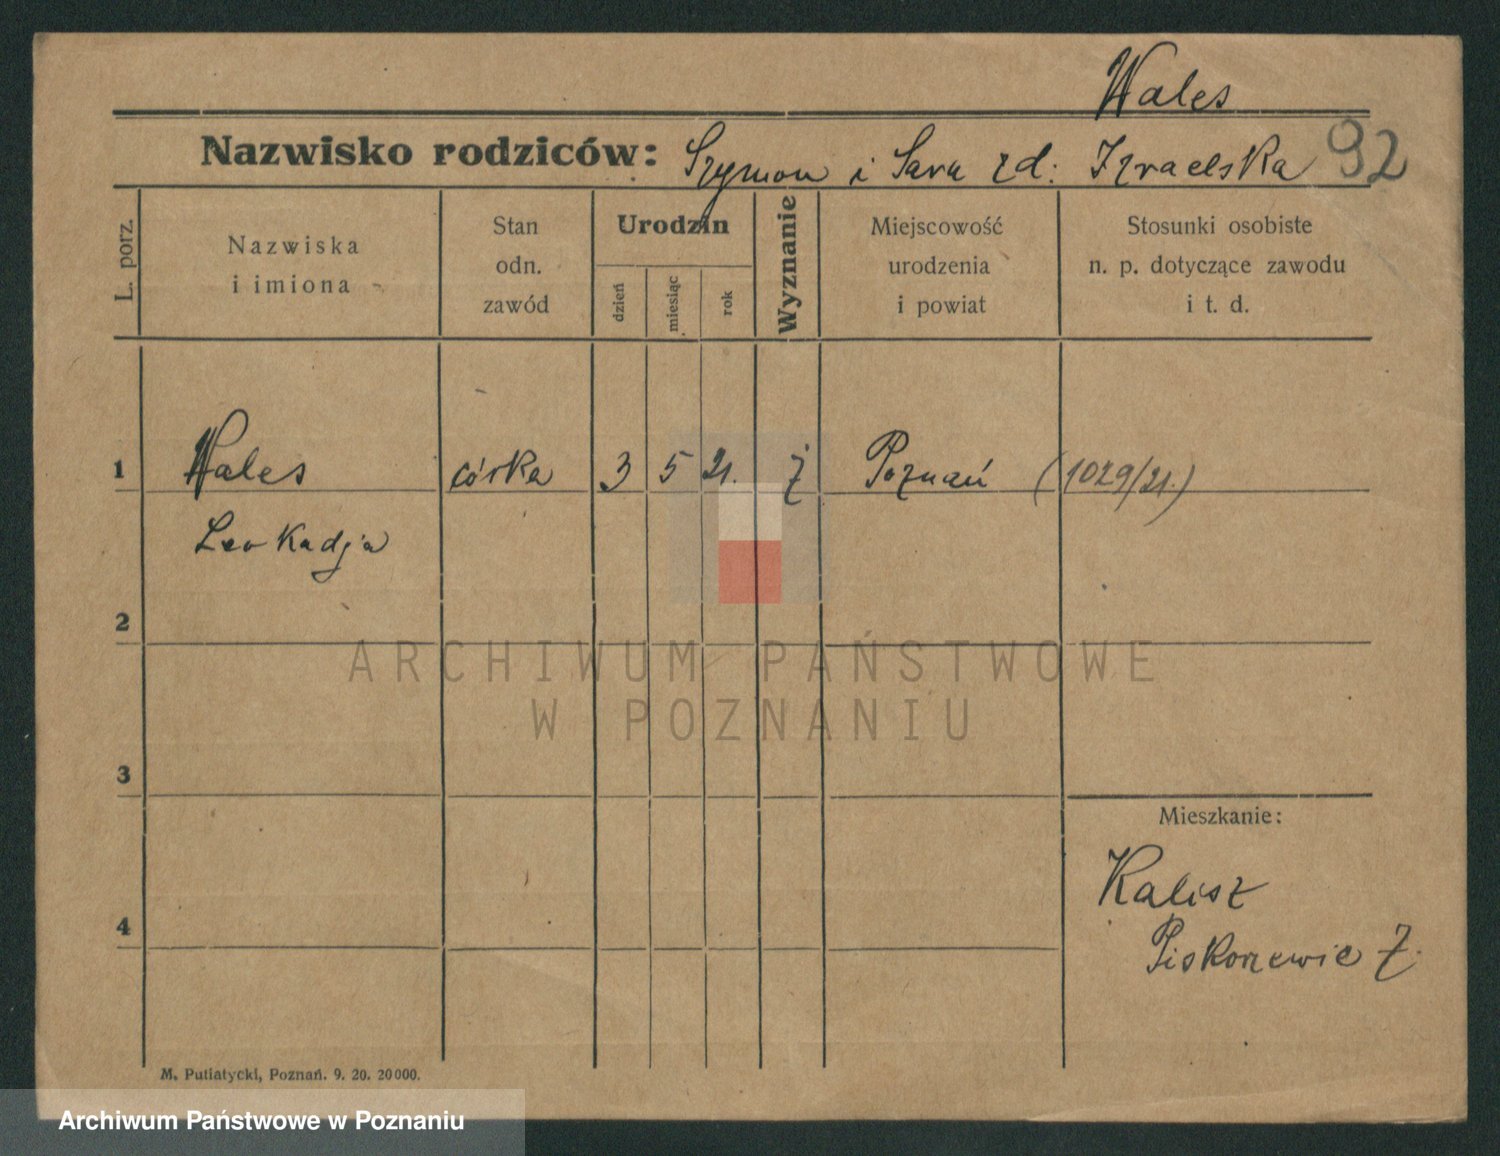 Wales
Nazwisko rodziców: Szymon i Sara zd: Izraelska 92
L. porz.
Nazwiska i imiona
Stan odn. zawód
Urodzin
dzień
miesiąc
rok
Wyznanie
Miejscowość urodzenia i powiat
Stosunki osobiste n. p. dotyczące zawodu i t. d.
1 Wales córka 3 5 21. ż Poznań (1029/21.)
Leokadja
2
ARCHIWUM PAŃSTWOWE
W POZNANIU
3
Mieszkanie:
Kalisz
4
Piskorzewie 7.
M. Putiatycki, Poznań. 9. 20. 20000.
Archiwum Państwowe w Poznaniu